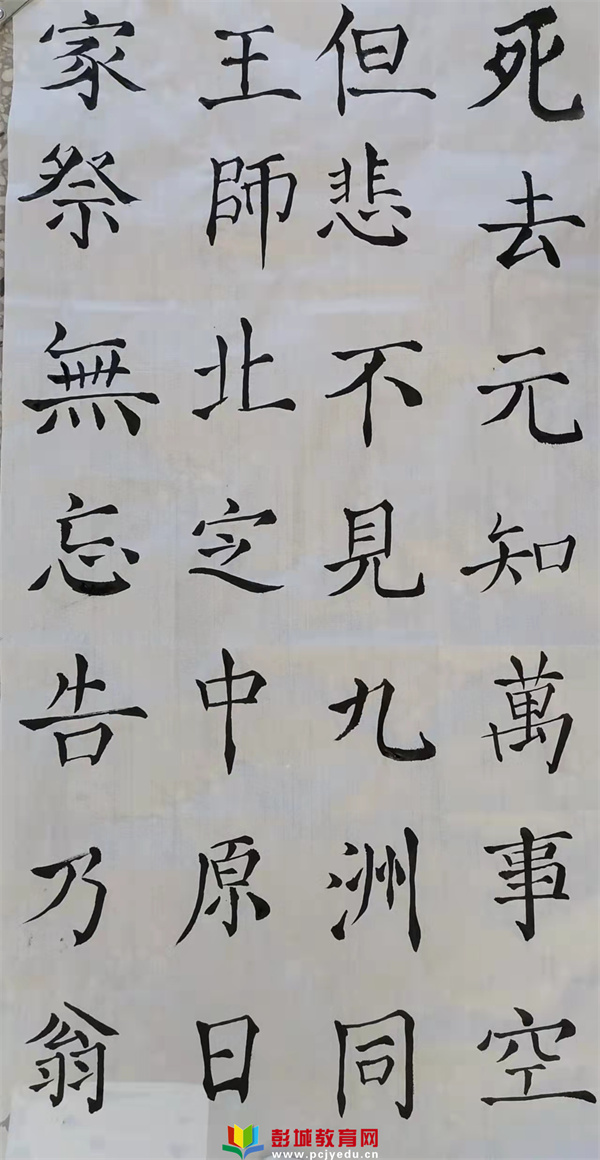 死去元知萬事空
但悲不見九洲同
王師北定中原日
家祭無忘告乃翁
彭城教育网
www.pcjyedu.cn